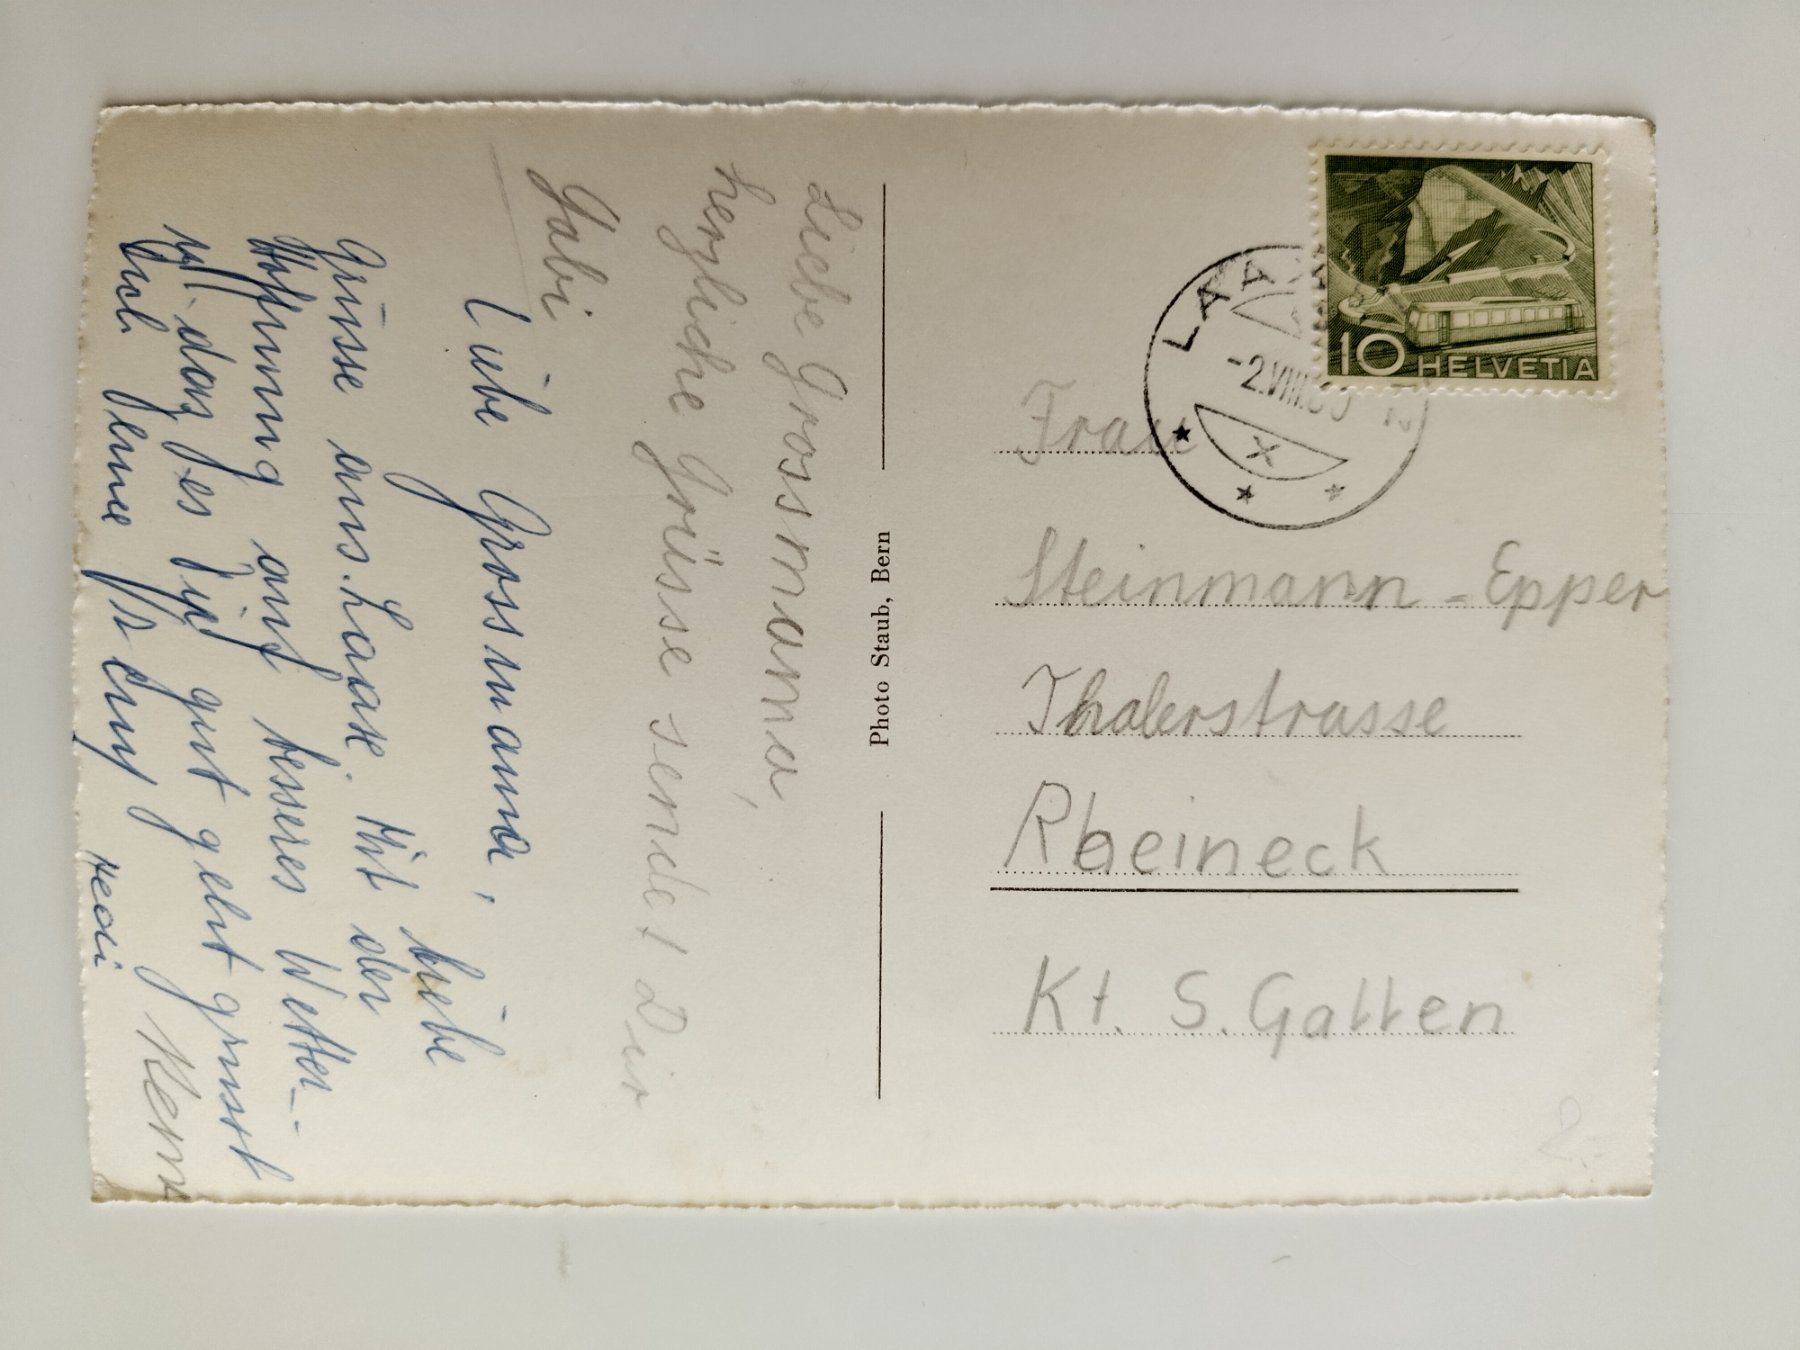 Liebe Grossmama,
herzliche Grüsse sendet Dir
Gabi
Liebe Grossmama,
Liebe
Grüsse aus Laax. Mit der
Hoffnung auf besseres Wetter
u. dass es Euch gut geht grüsst
Euch
Hedi
Photo Staub, Bern
LAA
-2.VIII.
X
10 HELVETIA
Frau
Steinmann-Epper
Thalerstrasse
Rheineck
Kt. S. Gallen
2.-